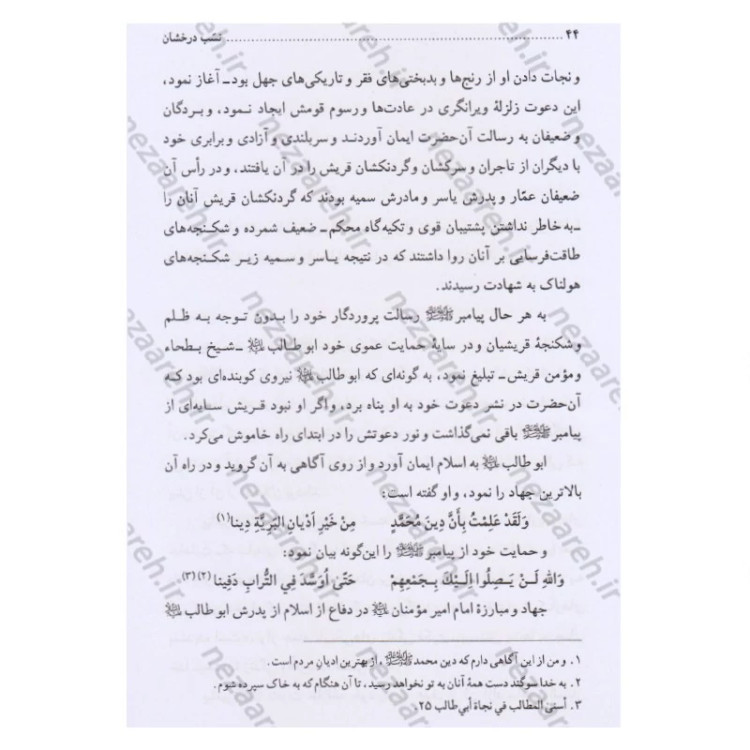 ۴۴ ........................ نسب درخشان
و نجات دادن او از رنج‌ها و بدبختی‌های فقر و تاریکی‌های جهل بود ـ آغاز نمود،
این دعوت زلزلهٔ ویرانگری در عادت‌ها و رسوم قومش ایجاد نـمود، و بـردگان
و ضعیفان به رسالت آن‌حضرت ایمان آوردنـد و سربلندی و آزادی و برابری خود
با دیگران از تاجران و سرکشان و گردنکشان قریش را در آن یافتند، و در رأس آن
ضعیفان عمّار و پدرش یاسر و مادرش سمیه بودند که گردنکشان قریش آنان را
ـ به خاطر نداشتن پشتیبان قوی و تکیه‌گاه محکم ـ ضعیف شمرده و شکـنجه‌های
طاقت‌فرسایی بر آنان روا داشتند که در نتیجه یـاسر و سمیه زیـر شکـنجه‌های
هولناک به شهادت رسیدند.
به هر حال پیامبر ﷺ رسالت پروردگار خود را بـدون توجه بـه ظـلم
و شکنجهٔ قریشیان و در سایهٔ حمایت عموی خود ابو طالب ﷷ ـ شـیخ بـطحاء
و مؤمن قریش ـ تبلیغ نمود، به گونه‌ای که ابو طالب نیروی کوبنده‌ای بود کـه
آن‌حضرت در نشر دعوت خود به او پناه برد، و اگر او نبود قریش سـایه‌ای از
پیامبر ﷺ باقی نمی‌گذاشت و نور دعوتش را در ابتدای راه خاموش می‌کرد.
ابو طالب به اسلام ایمان آورد و از روی آگاهی به آن گروید و در راه آن
بالاترین جهاد را نمود، و او گفته است:
وَلَقَد عَلِمْتُ بِأَنَّ دِینَ مُحَمَّدٍ مِنْ خَیْرِ اَدْیانِ البَرِیَّةِ دِینا (۱)
و حمایت خود از پیامبر ﷺ را این‌گونه بیان نمود:
وَاللهِ لَـنْ یَـصِلُوا اِلَیْكَ بِـجَمْعِهِمْ حَتّیٰ اُوَسَّدَ فِي التُّرابِ دَفِینا (۲) (۳).
جهاد و مبارزهٔ امام امیر مؤمنان در دفاع از اسلام از پدرش ابو طالب
۱. و من از این آگاهی دارم که دین محمد ﷺ، از بهترین ادیانِ مردم است.
۲. به خدا سوگند دست همهٔ آنان به تو نخواهد رسید، تا آن هنگام که به خاک سپرده شوم.
۳. أسنی المطالب في نجاة أبي‌طالب ۲۵.
nezaareh.ir